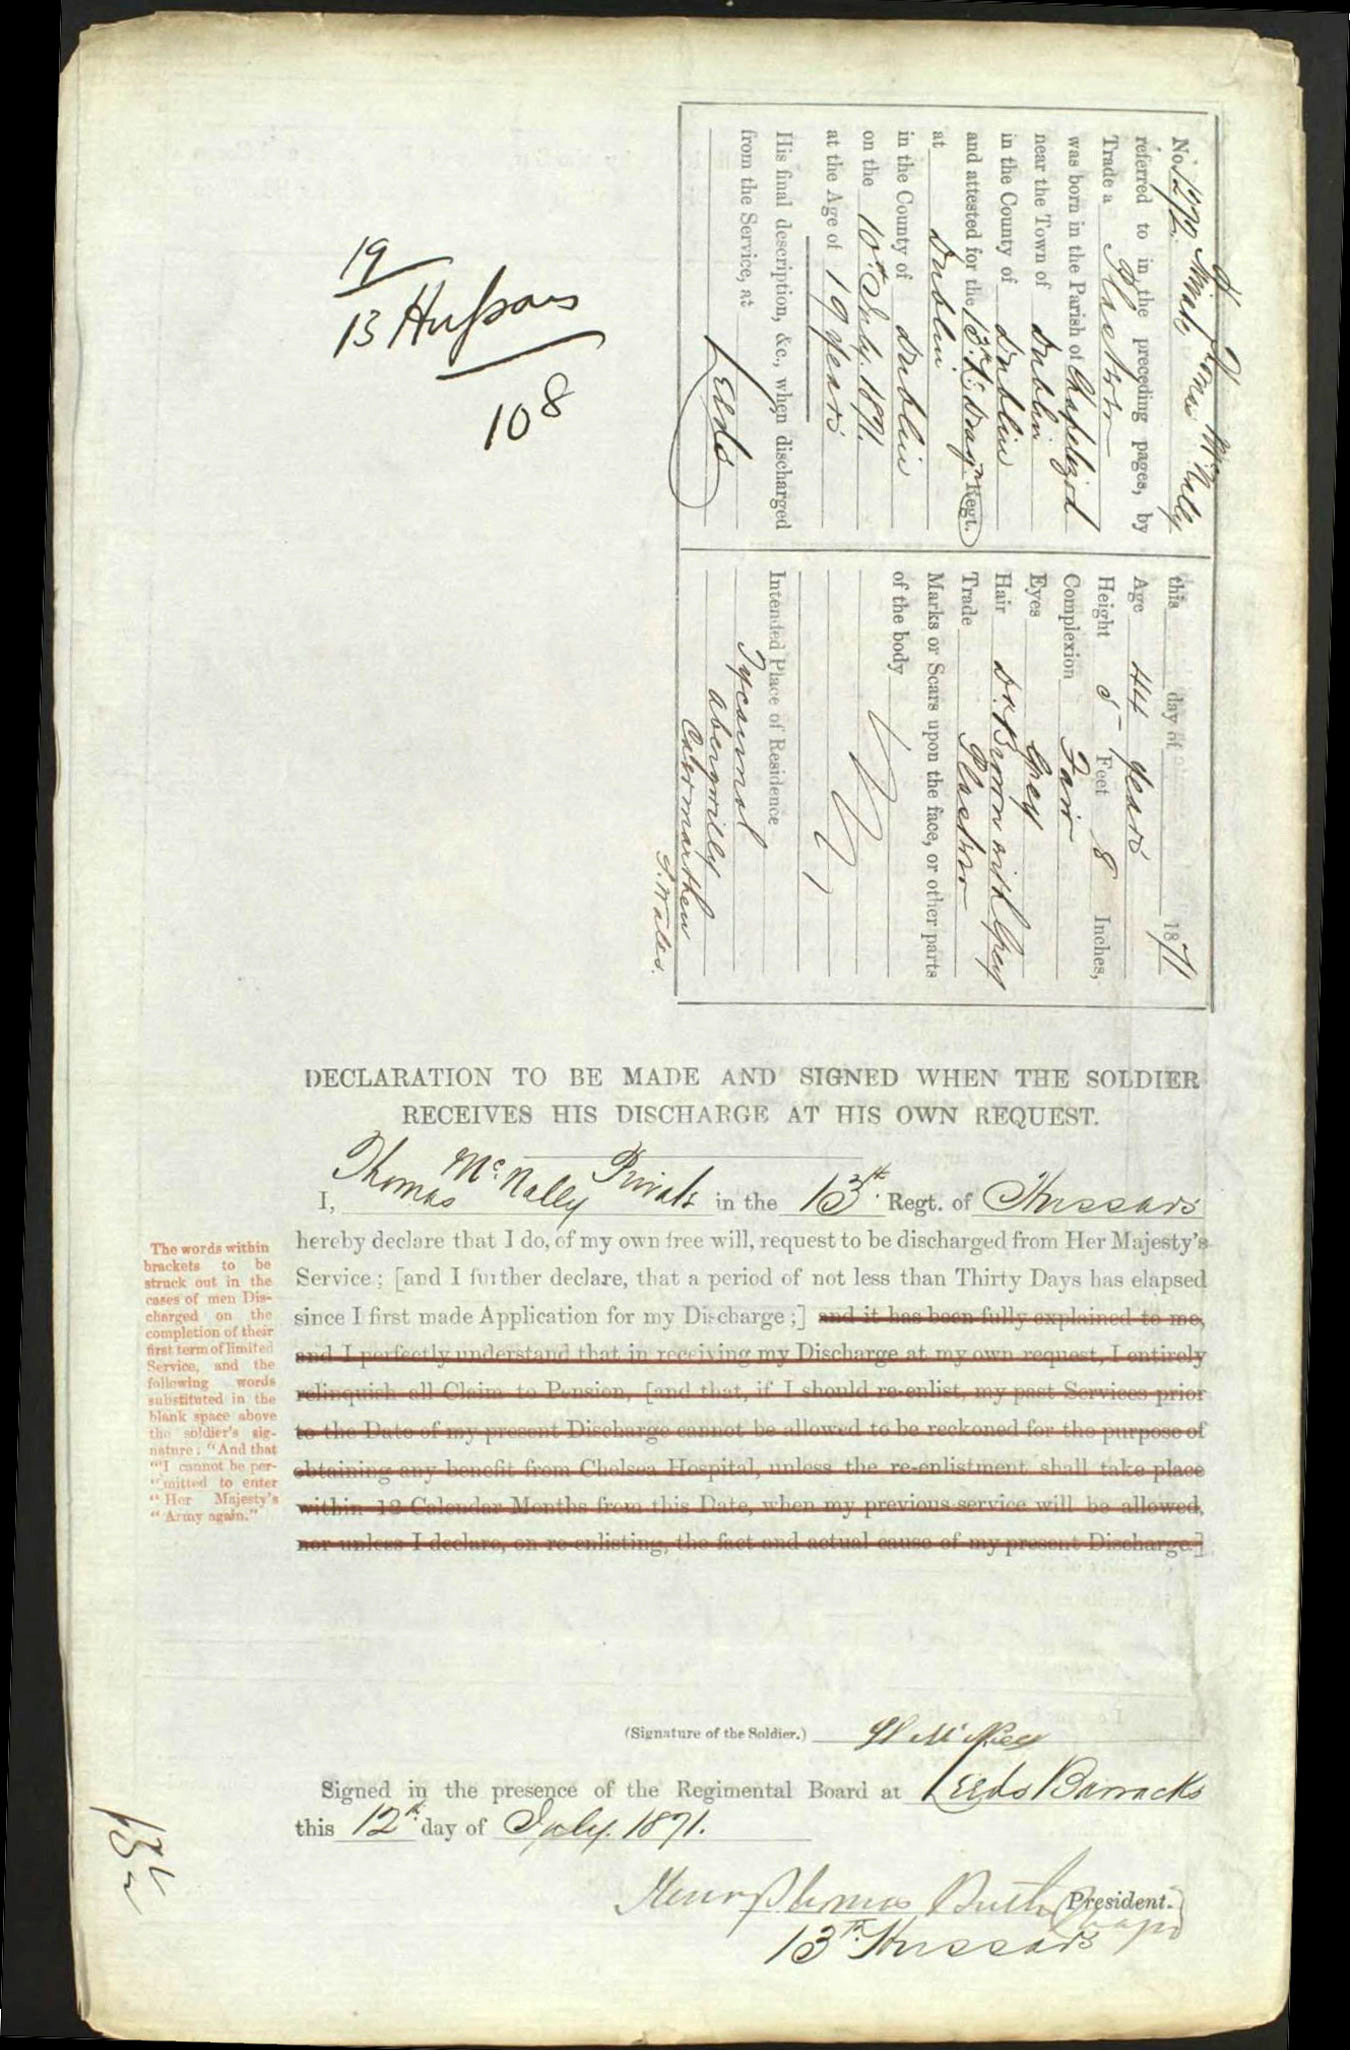 No. 1272 Private Thomas McNally
referred to in the preceding pages, by
Trade a Plasterer
was born in the Parish of Chapelizod
near the Town of Dublin
in the County of Dublin
and attested for the 13th Lt. Drag. Regt.
at Dublin
in the County of Dublin
on the 10th July. 1871.
at the Age of 19 years
His final description, &c., when discharged
from the Service, at
Leeds
this day of 1871
Age 44 years
Height 5 Feet 8 Inches,
Complexion Fair
Eyes Grey
Hair Dk. Brown with Grey
Trade Plasterer
Marks or Scars upon the face, or other parts
of the body
Intended Place of Residence
Abergwilly
Carmarthen
S. Wales.
19
13 Hussars
108
DECLARATION TO BE MADE AND SIGNED WHEN THE SOLDIER
RECEIVES HIS DISCHARGE AT HIS OWN REQUEST.
I, Thomas McNally Private in the 13th. Regt. of Hussars
hereby declare that I do, of my own free will, request to be discharged from Her Majesty's
Service; [and I further declare, that a period of not less than Thirty Days has elapsed
since I first made Application for my Discharge;] and it has been fully explained to me,
and I perfectly understand that in receiving my Discharge at my own request, I entirely
relinquish all Claim to Pension, [and that, if I should re-enlist, my past Services prior
to the Date of my present Discharge cannot be allowed to be reckoned for the purpose of
obtaining any benefit from Chelsea Hospital, unless the re-enlistment shall take place
within 12 Calendar Months from this Date, when my previous service will be allowed,
nor unless I declare, on re-enlisting, the fact and actual cause of my present Discharge.]
The words within
brackets to be
struck out in the
cases of men Dis-
charged on the
completion of their
first term of limited
Service, and the
following words
substituted in the
blank space above
the soldier's sig-
nature: "And that
"I cannot be per-
"mitted to enter
"Her Majesty's
"Army again."
(Signature of the Soldier.)
Signed in the presence of the Regimental Board at Leeds Barracks
this 12th day of July. 1871.
President.
13th Hussars